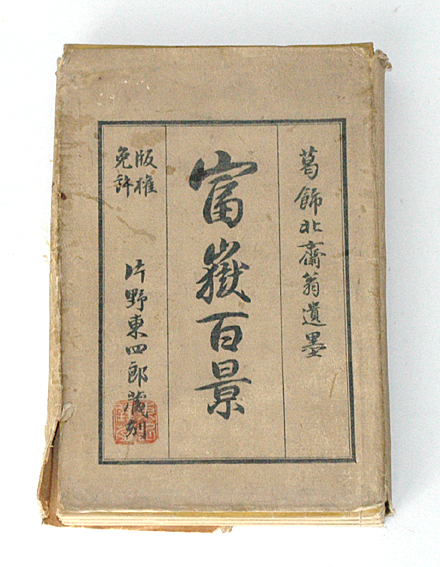 葛飾北齋翁遺墨
富嶽百景
版權
免許
片野東四郎藏刻